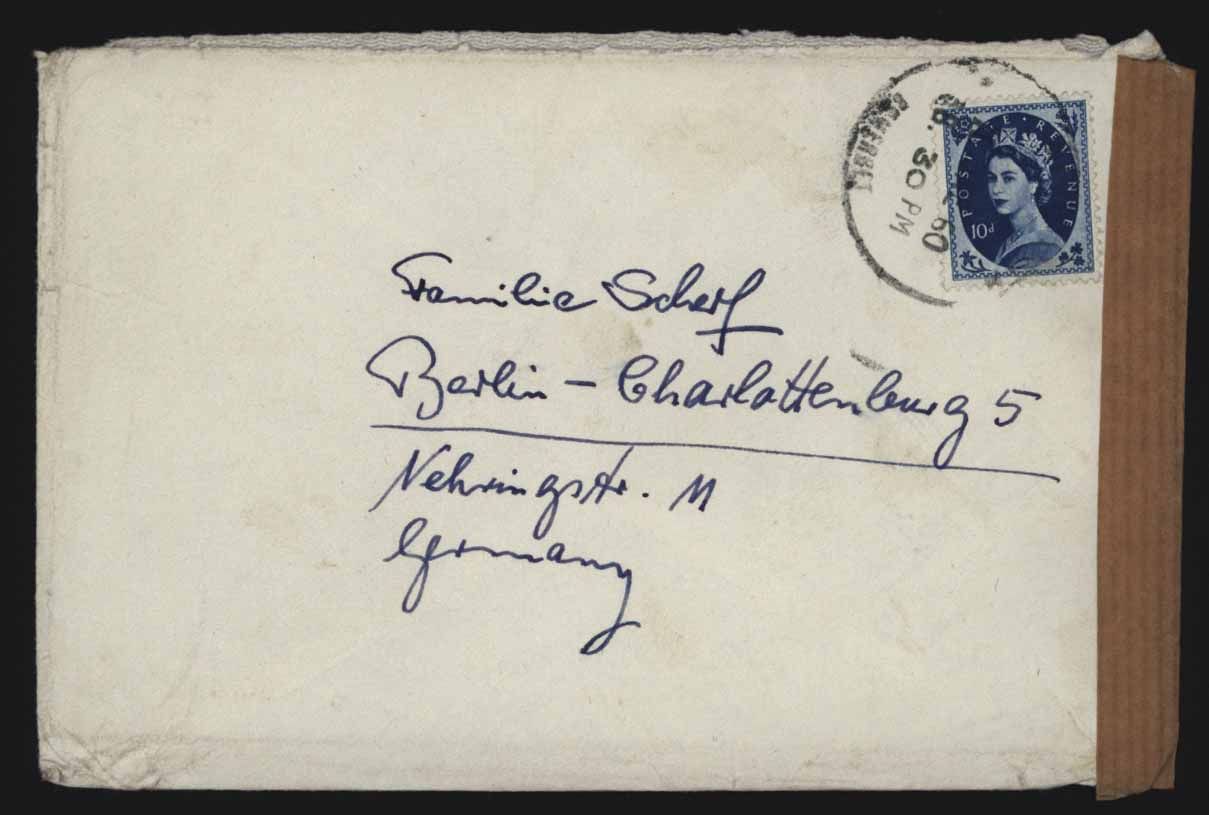 Familie Scherf
Berlin - Charlottenburg 5
Nehringstr. 11
Germany
30 PM
60
POSTAGE REVENUE
10d